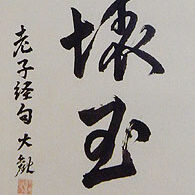 懐玉
老子経句 大